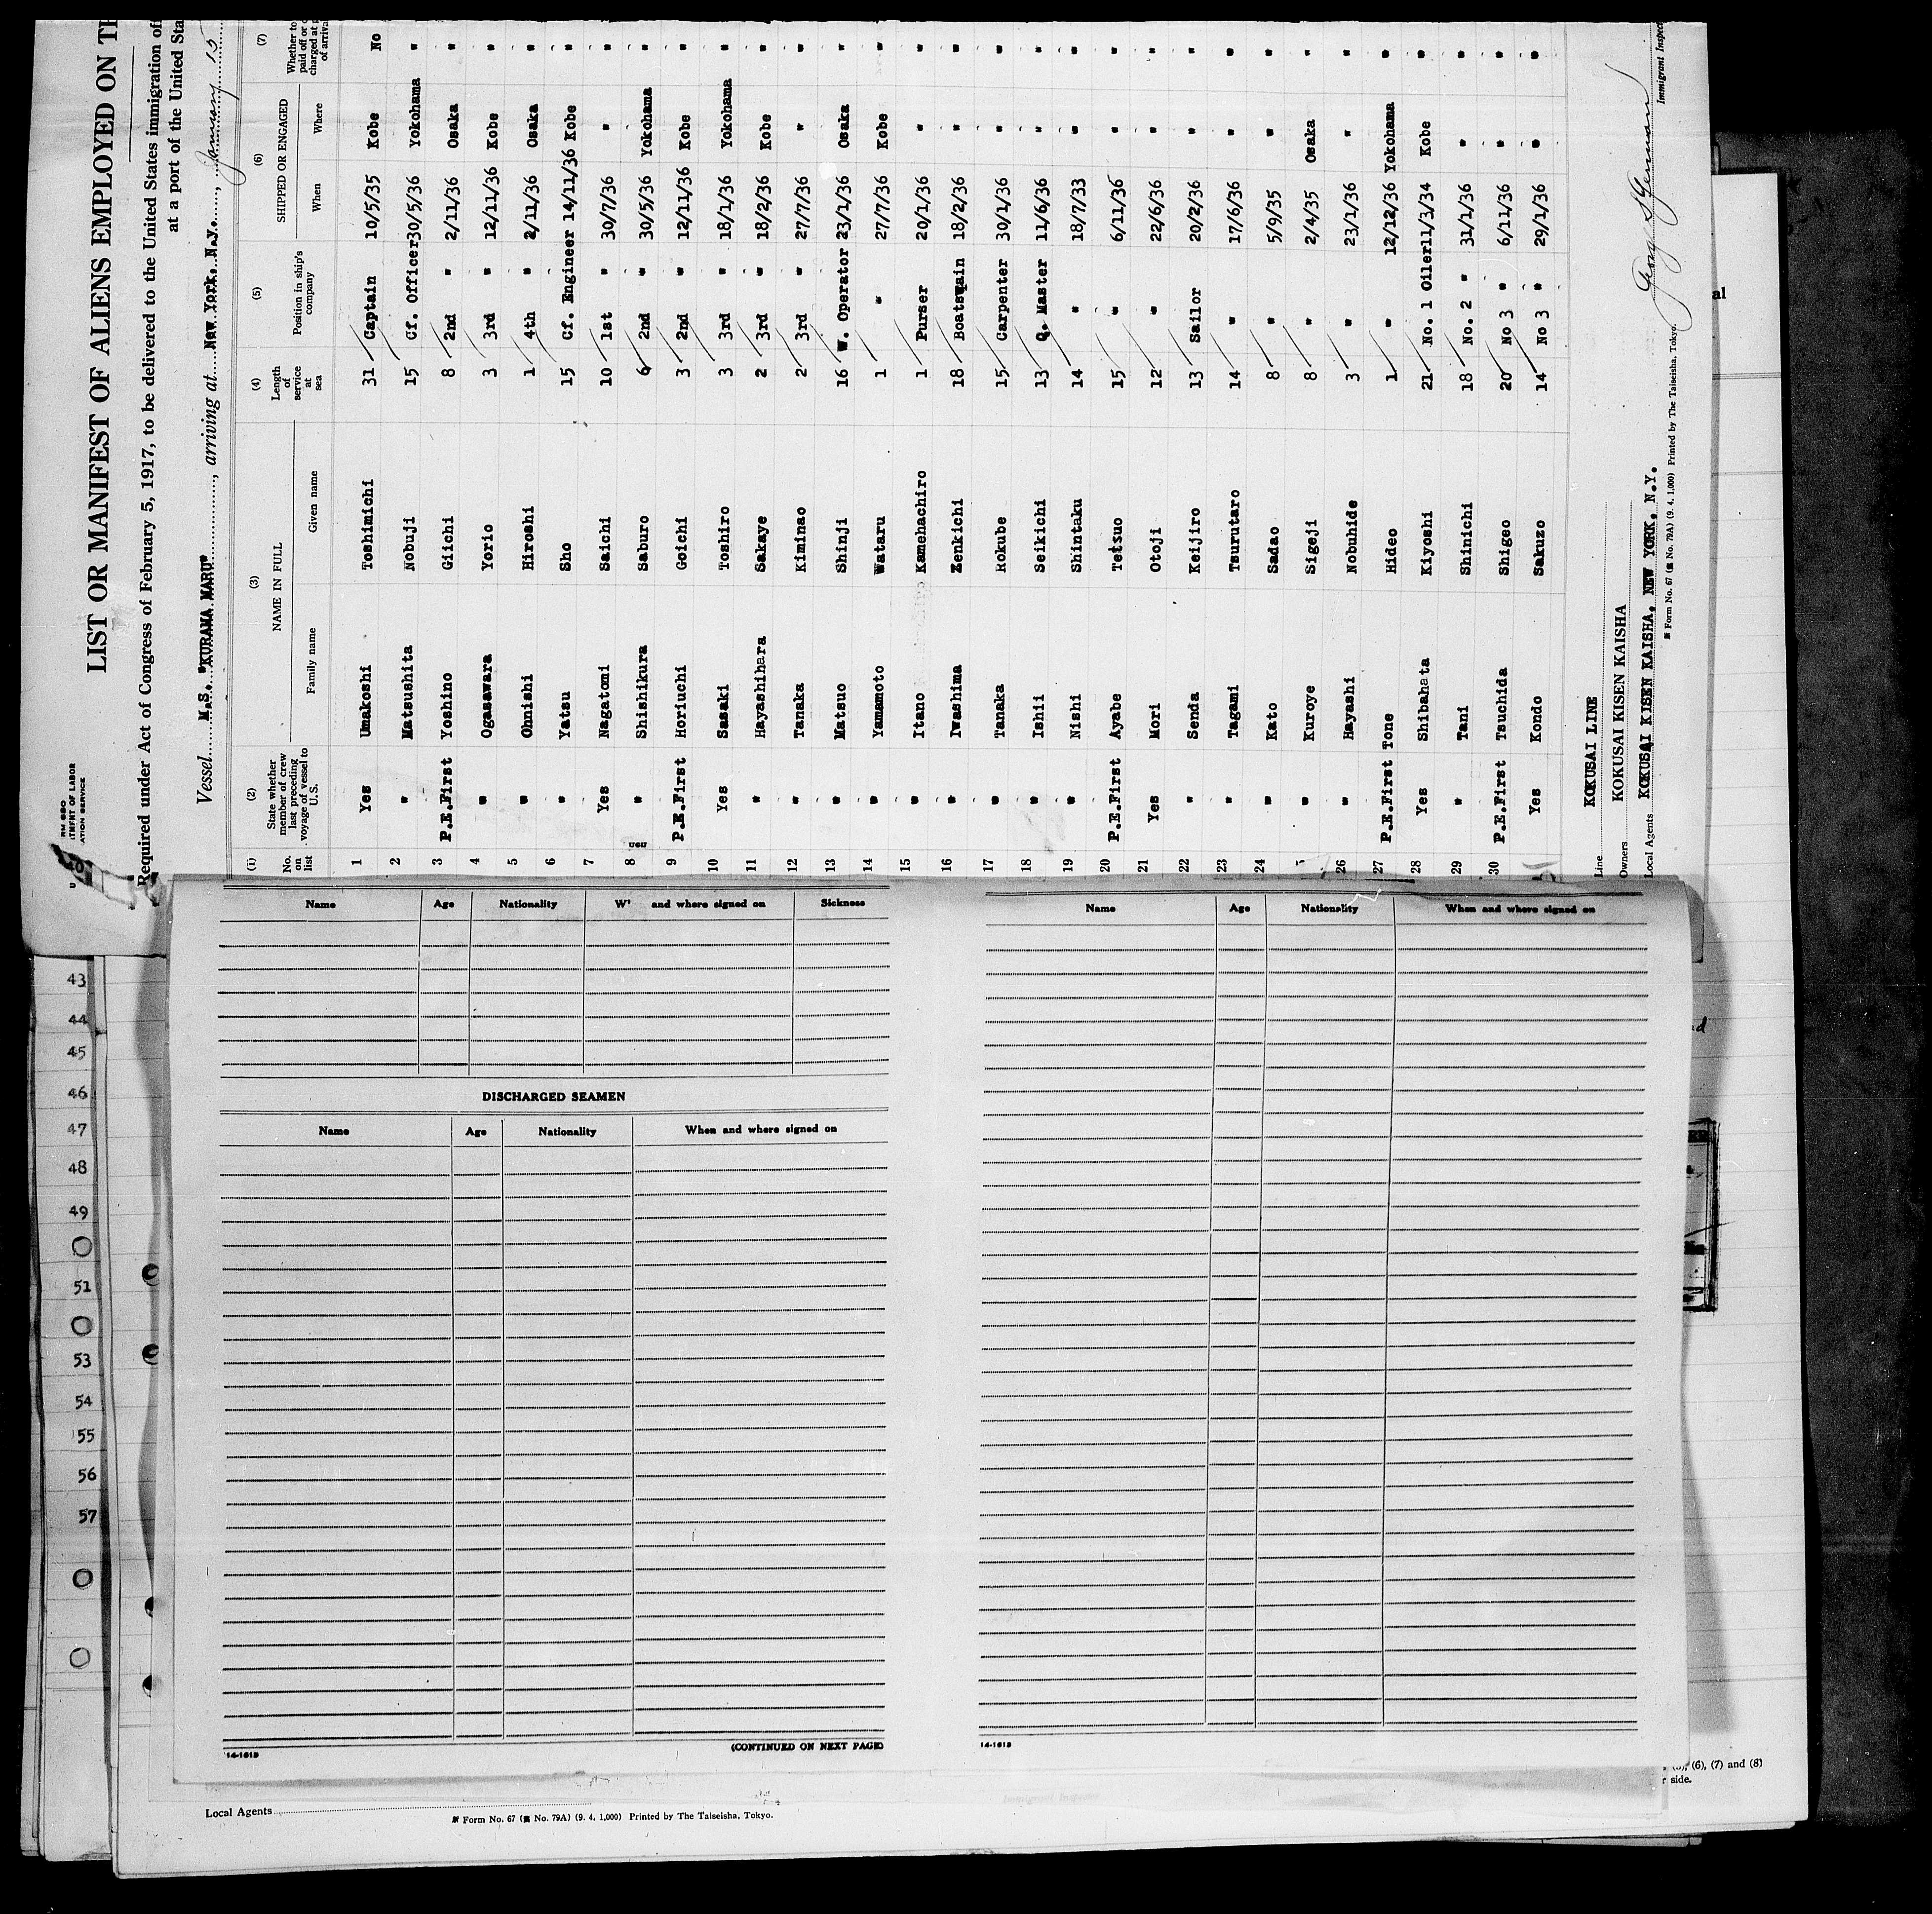 LIST OR MANIFEST OF ALIENS EMPLOYED ON
Required under Act of Congress of February 5, 1917, to be delivered to the United States immigration
at a port of the United
Vessel M.S. "KURAMA MARU", arriving at New York, N.Y., January 15
(1) No. on list (2) State whether member of crew last preceding voyage of vessel to U.S. (3) NAME IN FULL Family name Given name (4) Length of service at sea (5) Position in ship's company (6) SHIPPED OR ENGAGED When Where (7) Whether to paid off or charged at
1 Yes Umakoshi Toshimichi 31 Captain 10/5/35 Kobe No
2 " Matsushita Nobuji 15 Cf. Officer 30/5/36 Yokohama "
3 P.E.First Yoshino Giichi 8 2nd " 2/11/36 Osaka "
4 " Ogasawara Yorio 3 3rd " 12/11/36 Kobe "
5 " Ohnishi Hiroshi 1 4th " 2/11/36 Osaka "
6 " Yatsu Sho 15 Cf. Engineer 14/11/36 Kobe "
7 Yes Nagatomi Saichi 10 1st " 30/7/36 " "
8 " Shishikura Saburo 6 2nd " 30/5/36 Yokohama "
9 P.E.First Horiuchi Goichi 3 2nd " 12/11/36 Kobe "
10 Yes Sasaki Toshiro 3 3rd " 18/1/36 Yokohama "
11 " Hayashihara Sakaye 2 3rd " 18/2/36 Kobe "
12 " Tanaka Kiminao 2 3rd " 27/7/36 " "
13 " Matsuo Shinji 16 W. Operator 23/1/36 Osaka "
14 " Yamamoto Wataru 1 " 27/7/36 Kobe "
15 " Itano Kamehachiro 1 Purser 20/1/36 " "
16 " Iwashima Zenkichi 18 Boatswain 18/2/36 " "
17 " Tanaka Rokube 15 Carpenter 30/1/36 " "
18 " Ishii Seikichi 13 Q. Master 11/6/36 " "
19 " Nishi Shintaku 14 " 18/7/33 " "
20 P.E.First Ayabe Tetsuo 15 " 6/11/36 " "
21 Yes Mori Otoji 12 " 22/6/36 " "
22 " Senda Keijiro 13 Sailor 20/2/36 " "
23 " Tagami Tsurutaro 14 " 17/6/36 " "
24 " Kato Sadao 8 " 5/9/35 " "
" Kuroye Sigeji 8 " 2/4/35 Osaka "
26 " Hayashi Nobuhide 3 " 23/1/36 " "
27 P.E.First Tone Hideo 1 " 12/12/36 Yokohama "
28 Yes Shibahata Kiyoshi 21 No. 1 Oiler 11/3/34 Kobe "
29 " Tani Shinichi 18 No. 2 " 31/1/36 " "
30 P.E.First Tsuchida Shigeo 20 No 3 " 6/11/36 " "
Yes Kondo Sakuzo 14 No 3 " 29/1/36 " "
Line KOKUSAI LINE
Owners KOKUSAI KISEN KAISHA
Local Agents KOKUSAI KISEN KAISHA, NEW YORK, N.Y.
Form No. 67 (No. 79A) (9. 4. 1,000) Printed by The Taiseisha, Tokyo.
Immigrant
Name Age Nationality and where signed on Sickness
DISCHARGED SEAMEN
Name Age Nationality When and where signed on
14-1613 (CONTINUED ON NEXT PAGE)
Name Age Nationality When and where signed on
14-1613
43
44
45
46
47
48
49
51
53
54
55
56
57
(6), (7) and (8)
side.
Local Agents
Form No. 67 (No. 79A) (9. 4. 1,000) Printed by The Taiseisha, Tokyo.